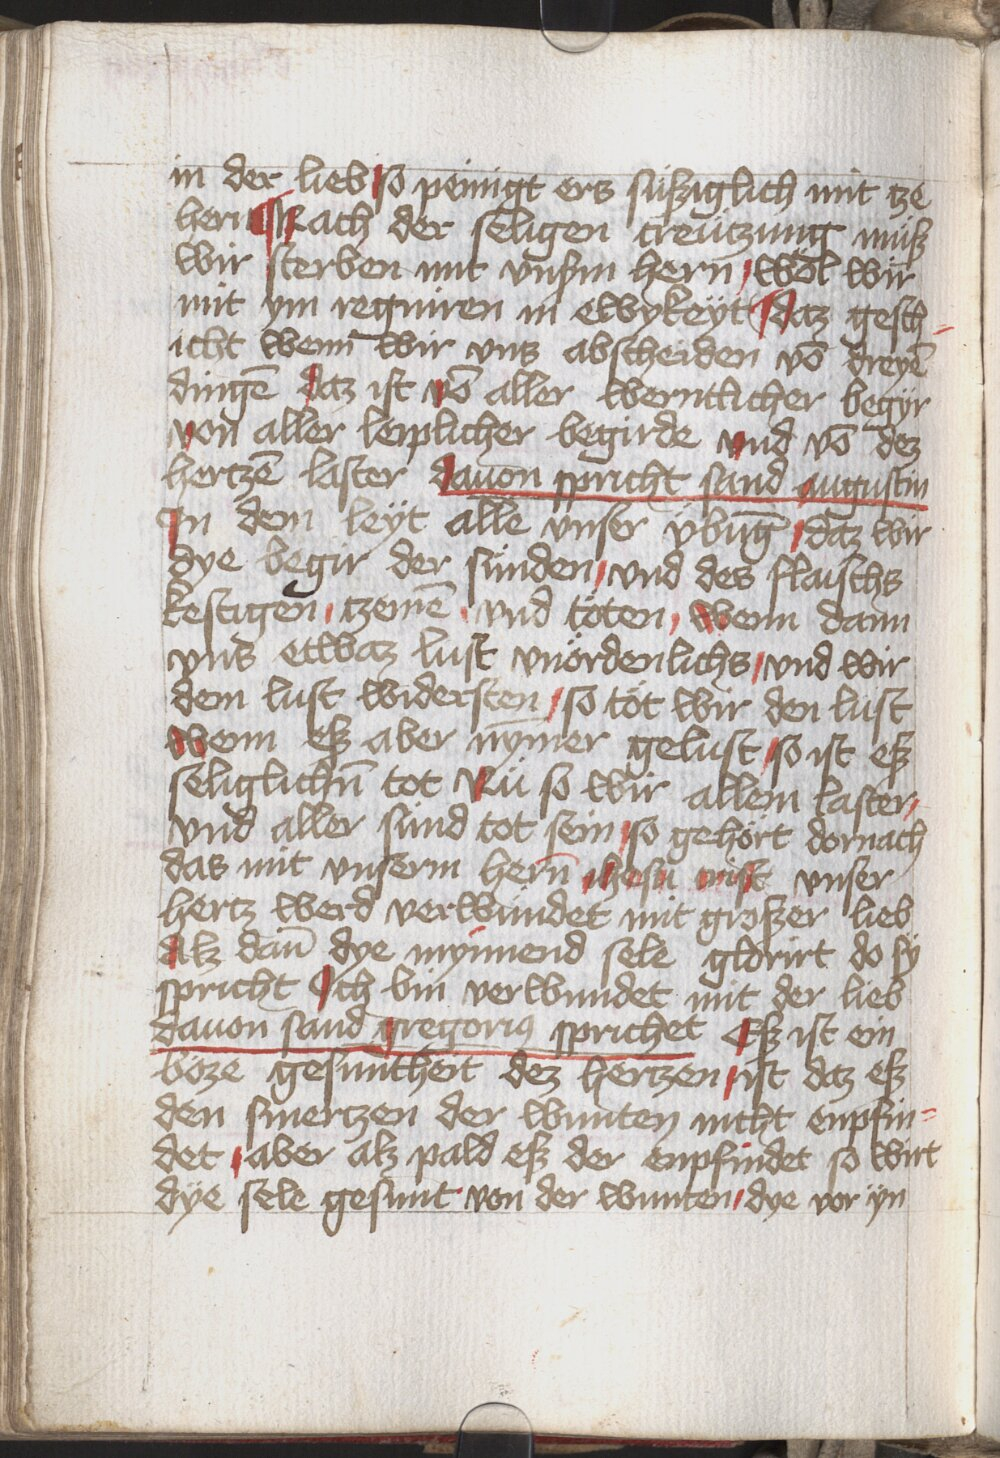 in der lieb so peinigt ers süßiglich mit tze
hern Nach der seligen creützung muß
wir sterben mit vnßm hern wöl wir
mit ym regniren in ewykeyt daz gesch-
icht wenn wir vns abscheiden võ dreyẽ
dingẽ daz ist võ aller werntlicher begÿr
von aller leiplicher begirde vnd võ dez
hertzẽ laster dauon spricht sand augustin
In dem leÿt alle vnser v̈bũg daz wir
dye begir der sünden vnd des flaischs
kestigen tzemẽ vnd töten wenn dann
vns etwaz lust vnördenlichs vnd wir
dem lust widersten so töt wir den lust
wenn eß aber nÿmer gelust so ist eß
seliglichñ tot Nü so wir allem laster
vnd aller sünd tot sein so gehört dornach
das mit vnserm herñ ihesu crist vnser
hertz werd verwundet mit großer lieb
alz dañ dye mynnend sele glorirt do sÿ
spricht Ich bin verwundet mit der lieb
dauon sand gregorius sprichet Eß ist ein
böze gesuntheit dez hertzen ist daz eß
den smertzen der wunten nicht enpfin-
det aber alz pald eß der enpfindet so wirt
dÿe sele gesunt von der wunten dye vor ÿn